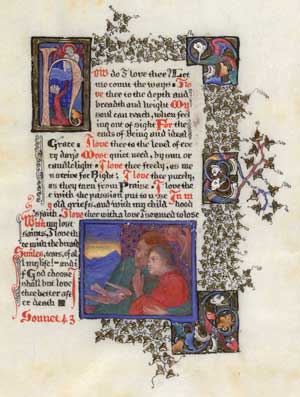 How do I love thee? Let
me count the ways. I lo
ve thee to the depth and
breadth and height My
soul can reach, when feel
ing out of sight For the
ends of Being and ideal
Grace. I love thee to the level of eve
ry day's Most quiet need, by sun or
candlelight. I love thee freely, as me
n strive for Right; I love thee purely,
as they turn from Praise. I love the
e with the passion put to use In m
y old griefs, and with my child hood
's faith. I love thee with a love I seemed to lose
With my lost
saints, I love th
ee with the breath
Smiles, tears, of al
l my life! and i
f God choose
I shall but love
thee better aft
er death
Sonnet 43